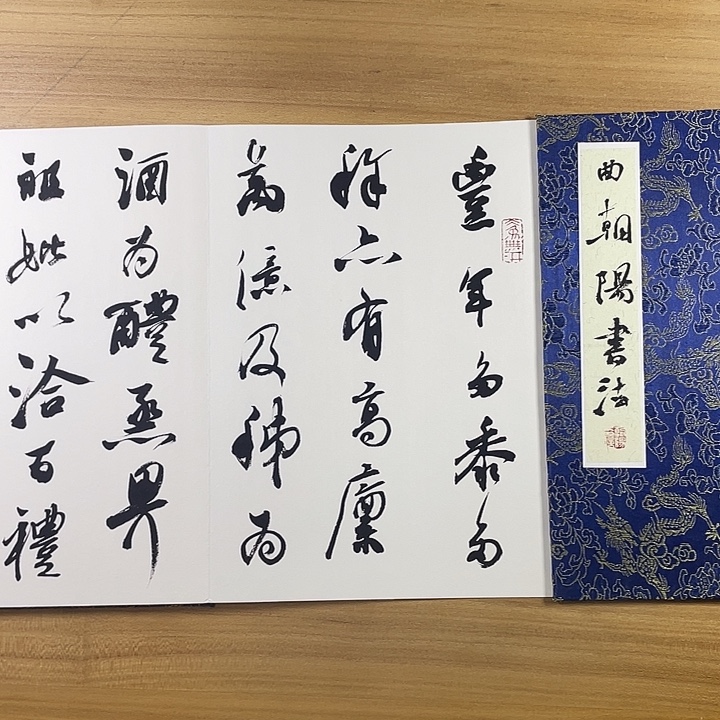 曲朝陽書法
豐年多黍多
稌亦有高廩
萬億及秭為
酒為醴烝畀
祖妣以洽百禮